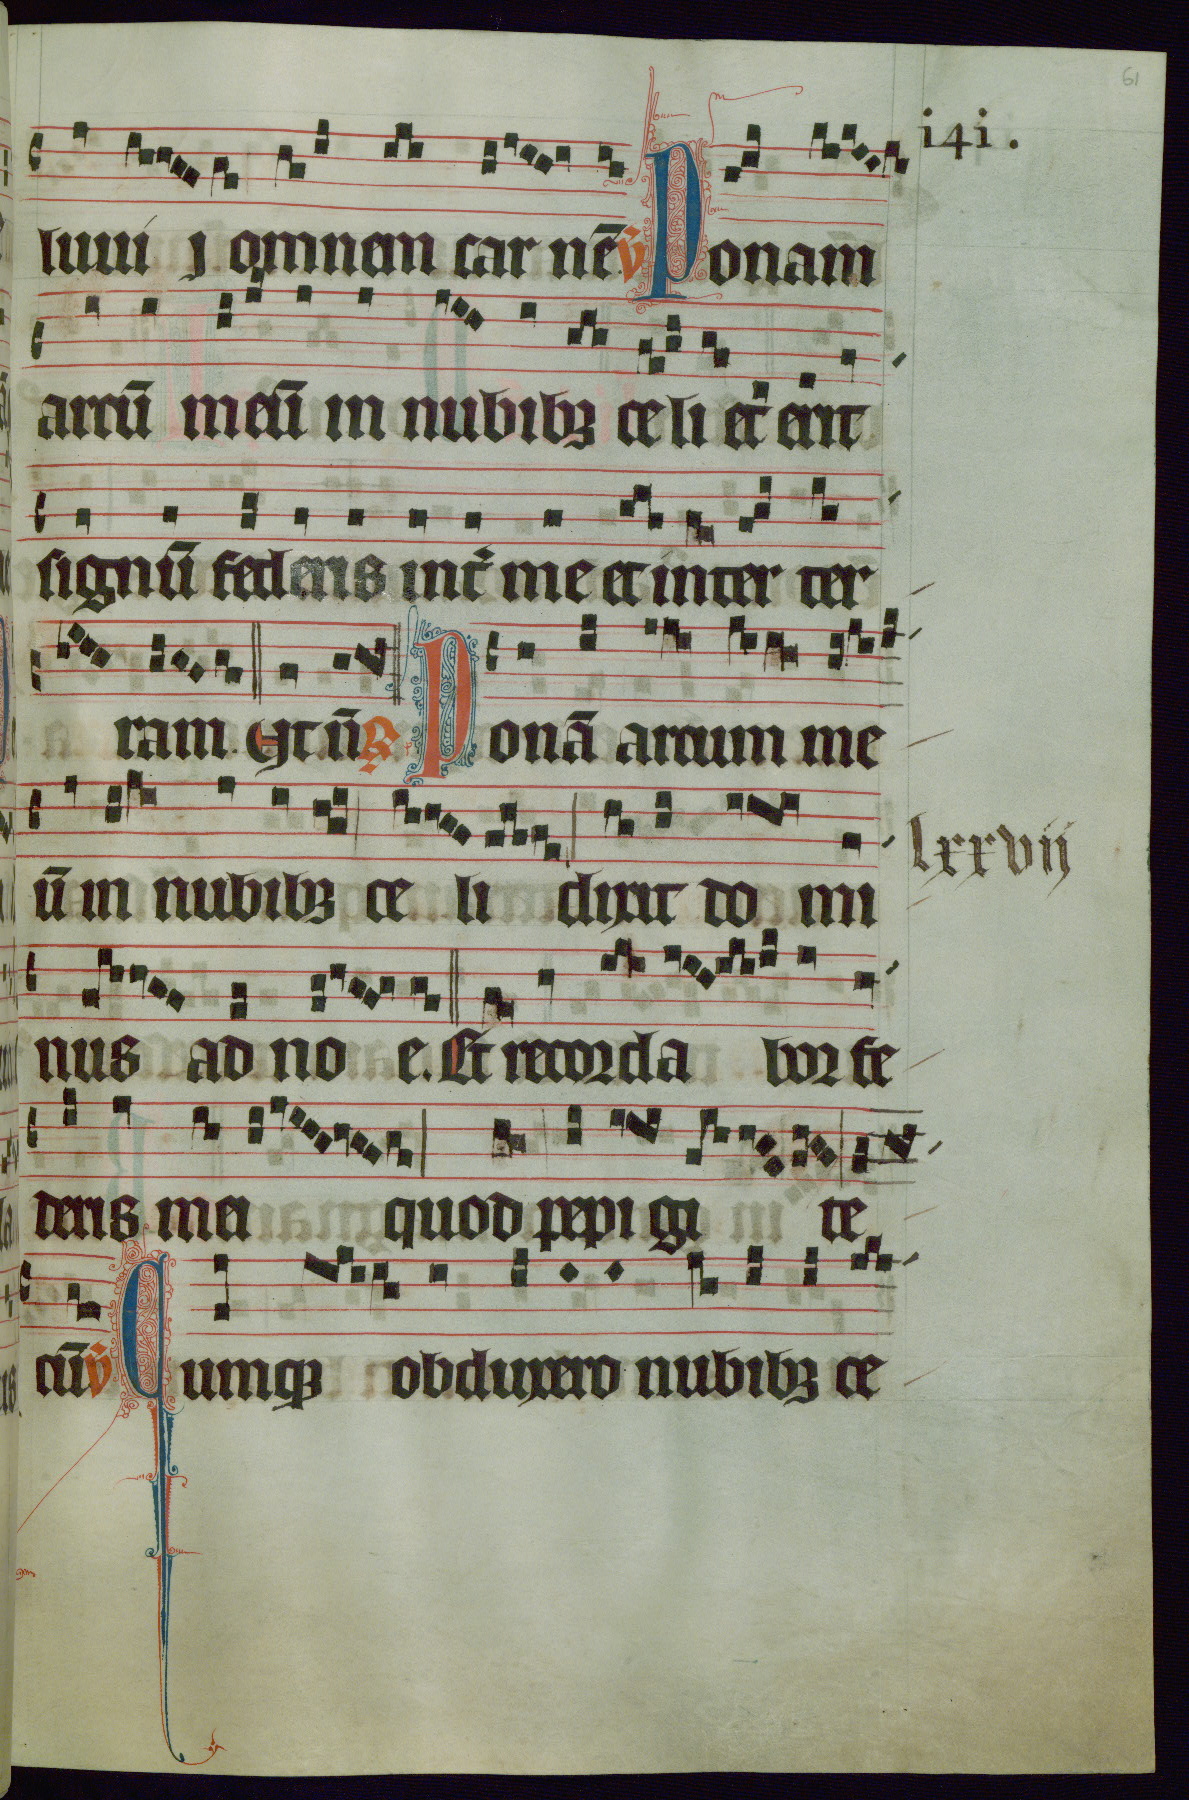 61
i4i.
luuii J omnem car nē. v̄ Ponam̄
arcū meū in nubibꝫ celi et erit
signū federis int̄ me et inter ter
ram. Et n̄ ℟ Ponā arcum me
ū in nubibꝫ ce li dixit do mi
lxxvij
nus ad no e. Et recorda bor fe
deris mei quod pepi gi te
cū v̄ Cumqꝫ obduxero nubibꝫ ce